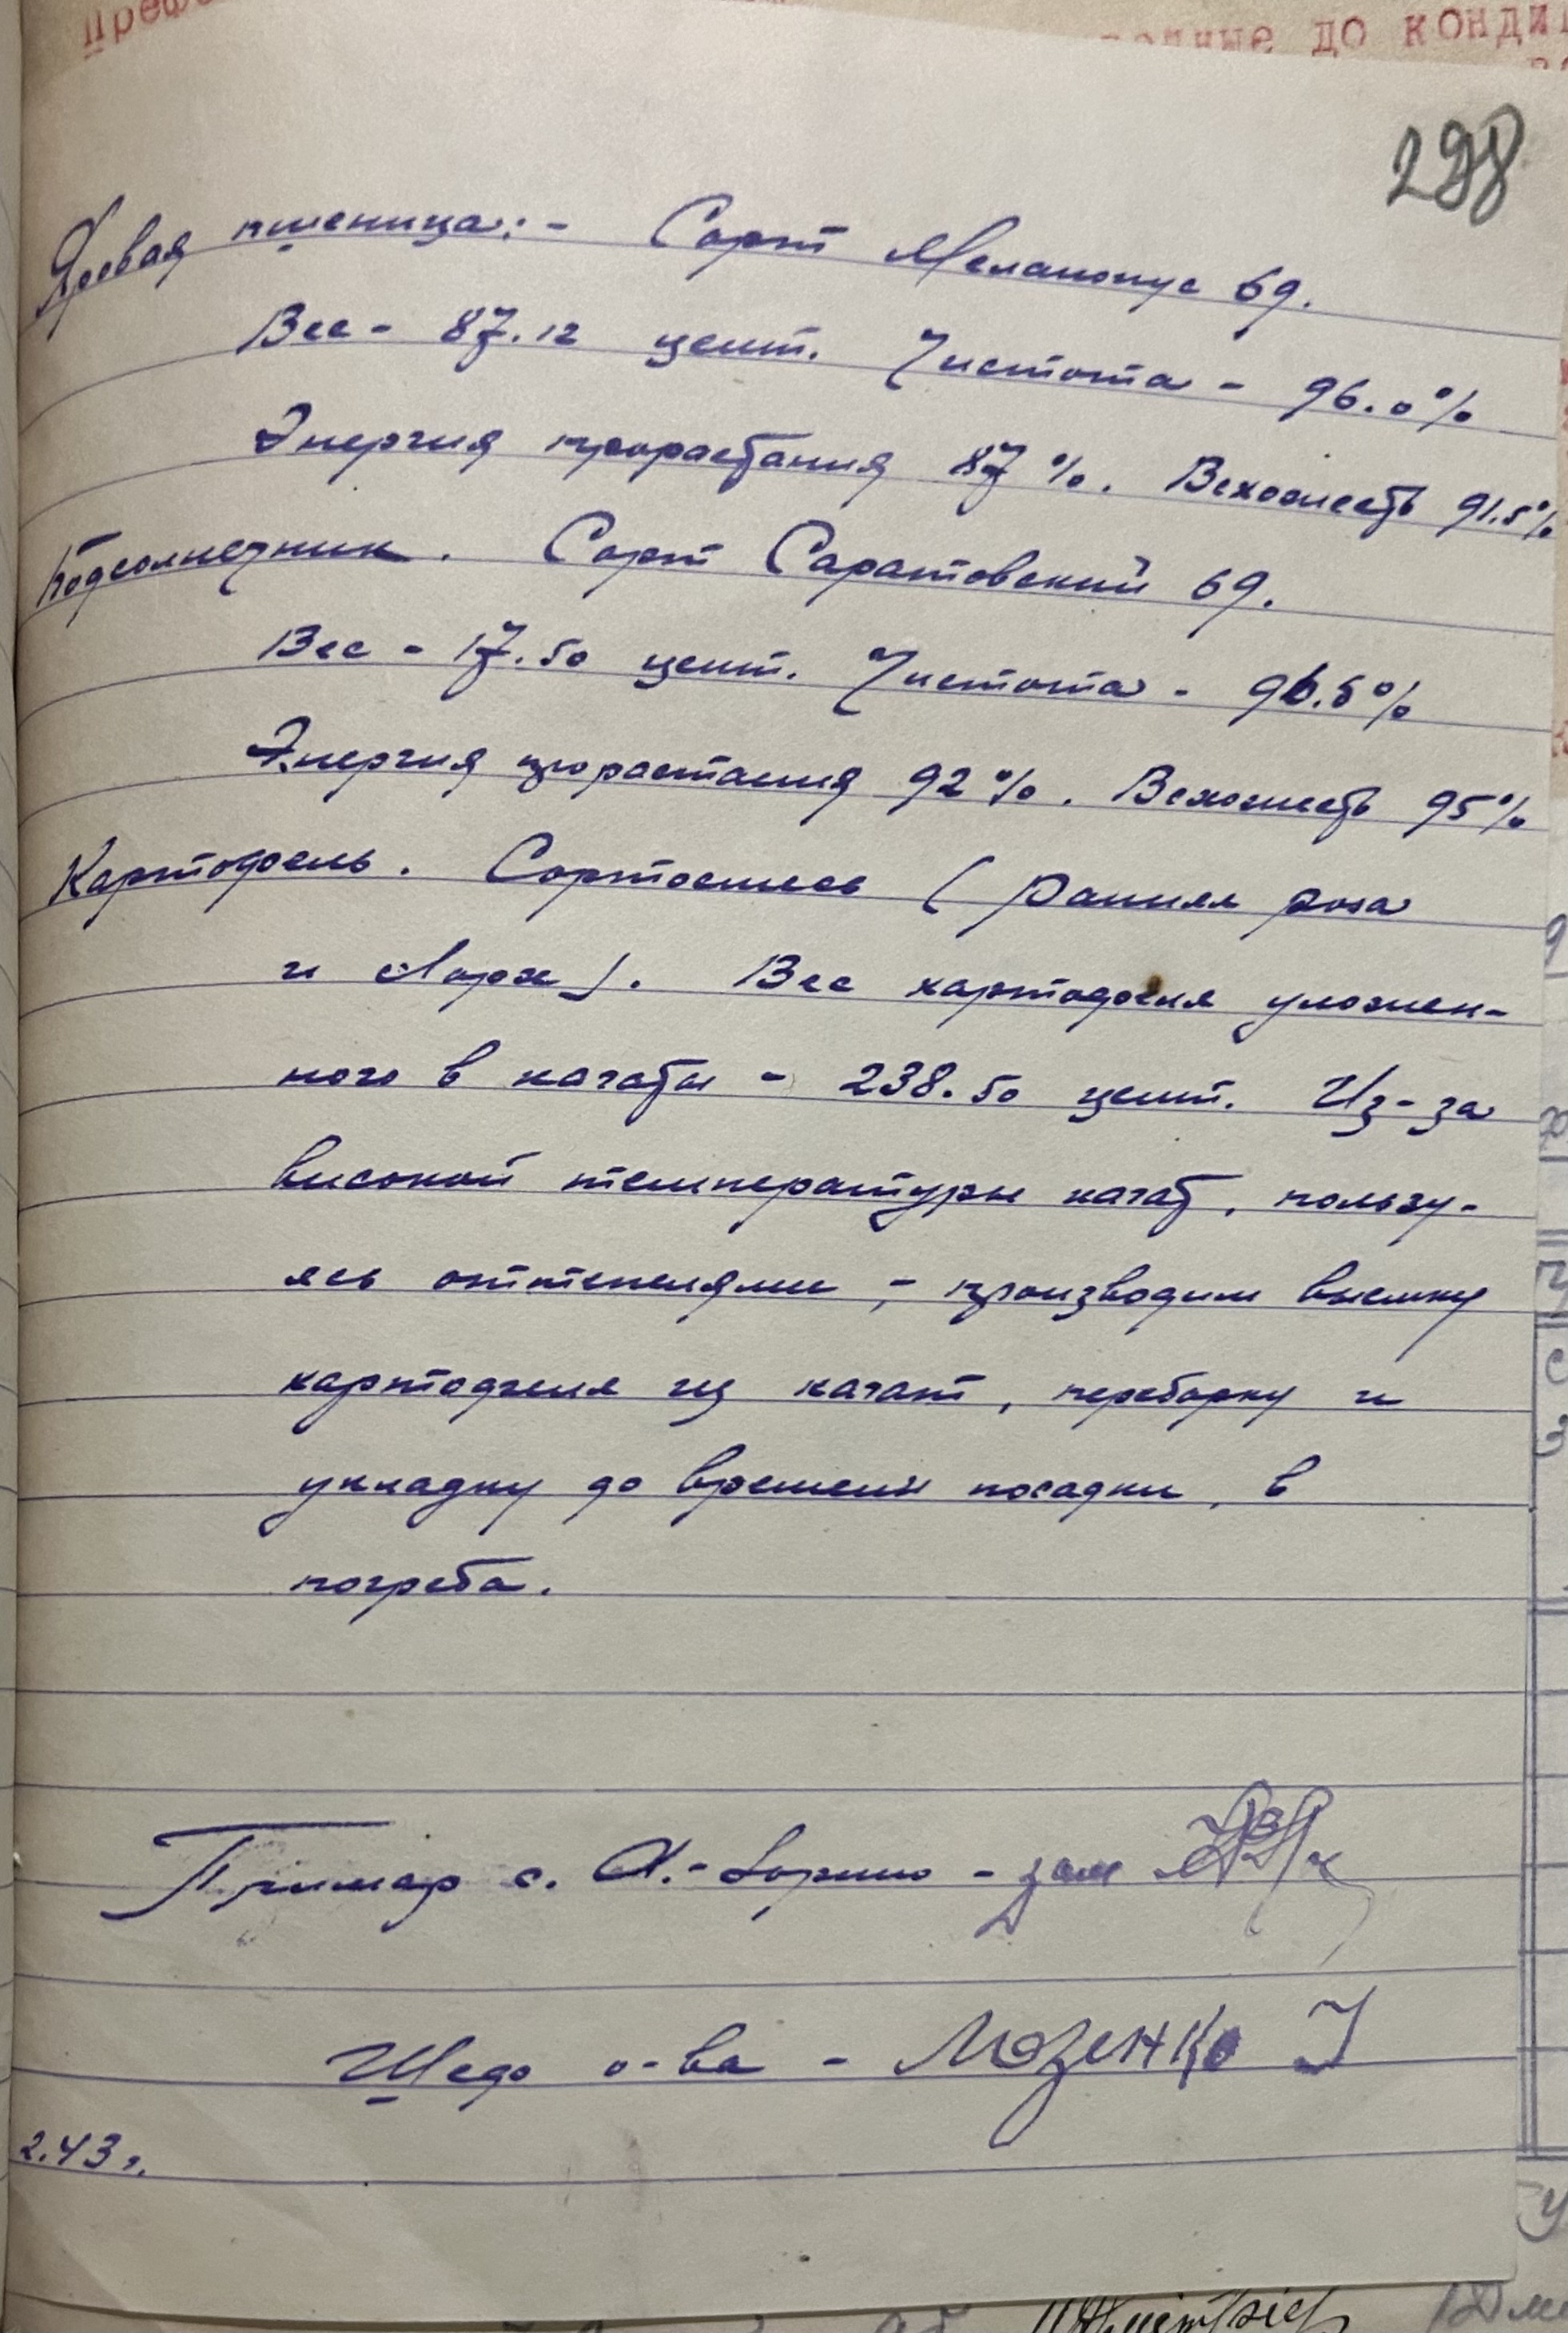 до конди
298
Яровая пшеница: - Сорт Мелянопус 69.
Вес - 87.12 цент. Чистота - 96.0%
Энергия прорастания 87%. Всхожесть 91.5%
Подсолнечник. Сорт Саратовский 69.
Вес - 17.50 цент. Чистота - 96.5%
Энергия прорастания 92%. Всхожесть 95%
Картофель. Сортосмесь (Ранняя роза
и Лорх). Вес картофеля уложен-
ного в кагаты - 238.50 цент. Из-за
высокой температуры кагат, пользу-
ясь оттепелями, - производим выемку
картофеля из кагат, переборку и
укладку до времени посадки, в
погреба.
Примар с. А.- - зам
Шеф о-ва - Мозенко І
2.43 г.